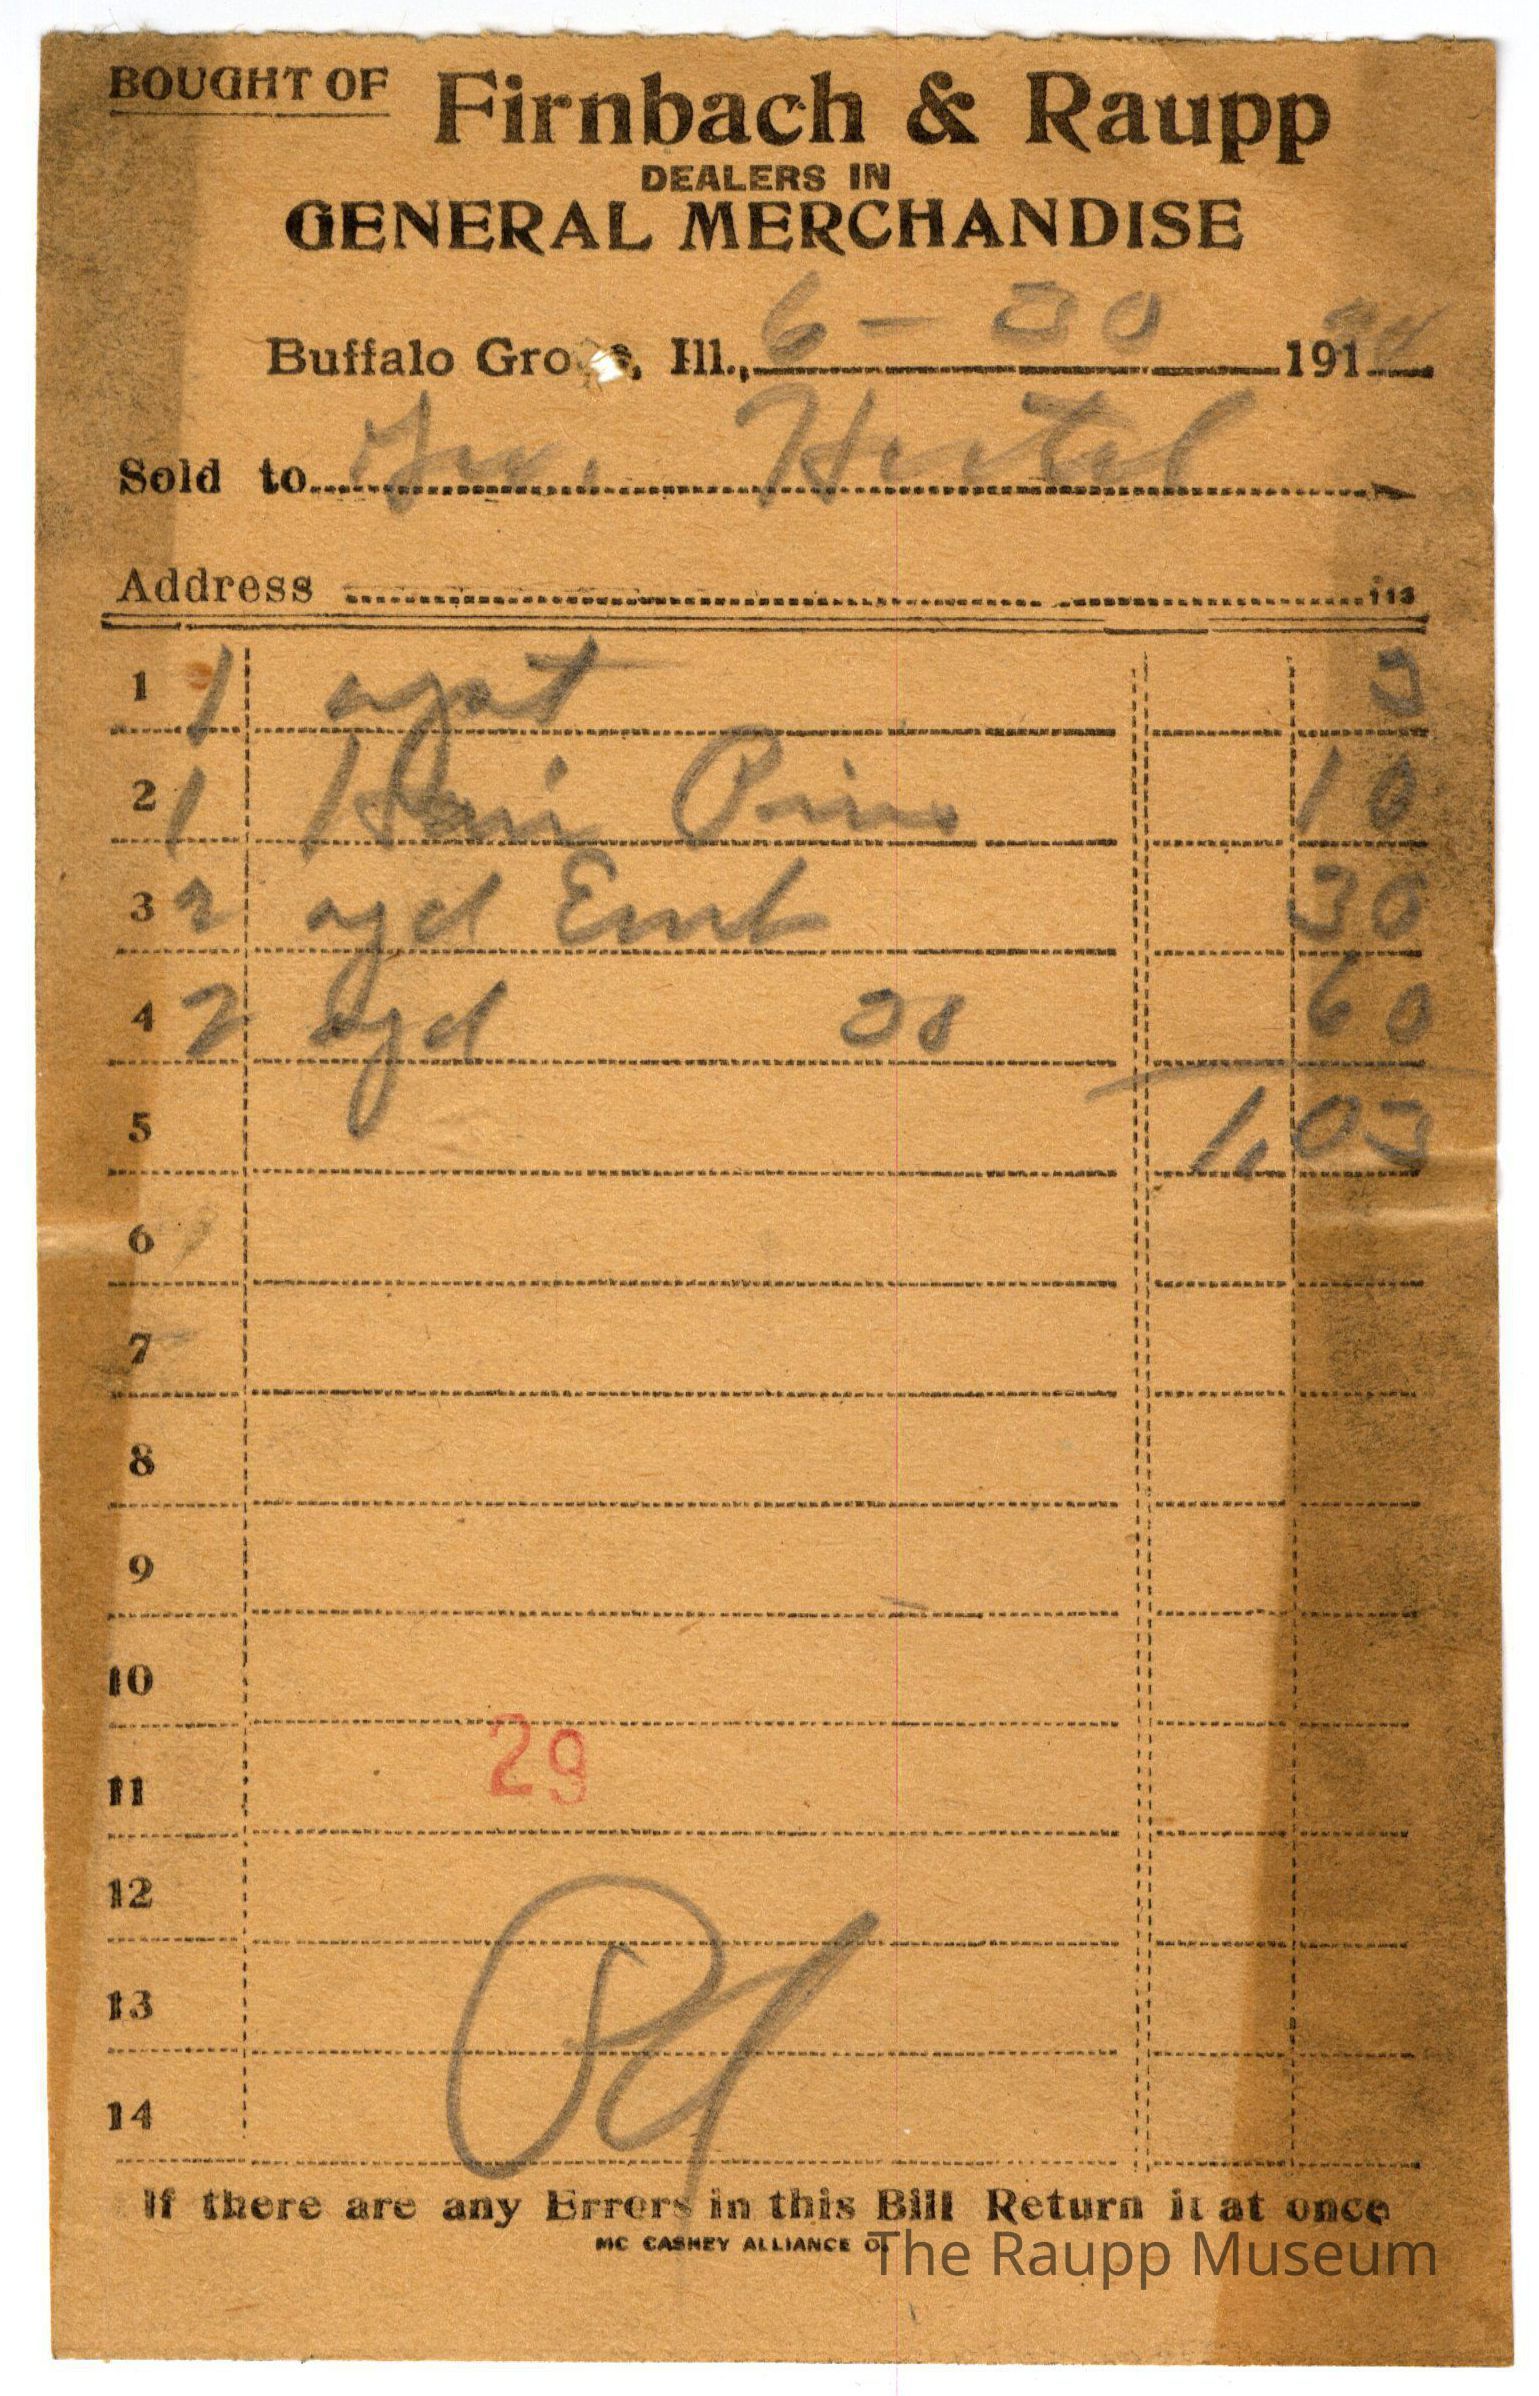 BOUGHT OF Firnbach & Raupp
DEALERS IN
GENERAL MERCHANDISE
Buffalo Gro s, Ill., 6 - 30 191
Sold to Hertel
Address 113
1 1 3
2 1 Hair Pins 10
3 2 yd Emb 30
4 2 yd 60
5 1.03
6
7
8
9
10
11 29
12
13
14
Pd
If there are any Errors in this Bill Return it at once
MC CASKEY ALLIANCE O.
The Raupp Museum